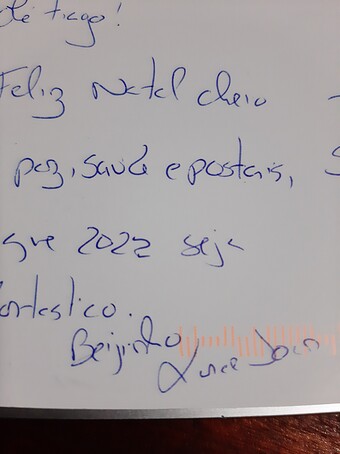 Olé tiago!
Feliz Natal cheio
paz, saúde e postais,
que 2022 seja
fantastico.
Beijinho